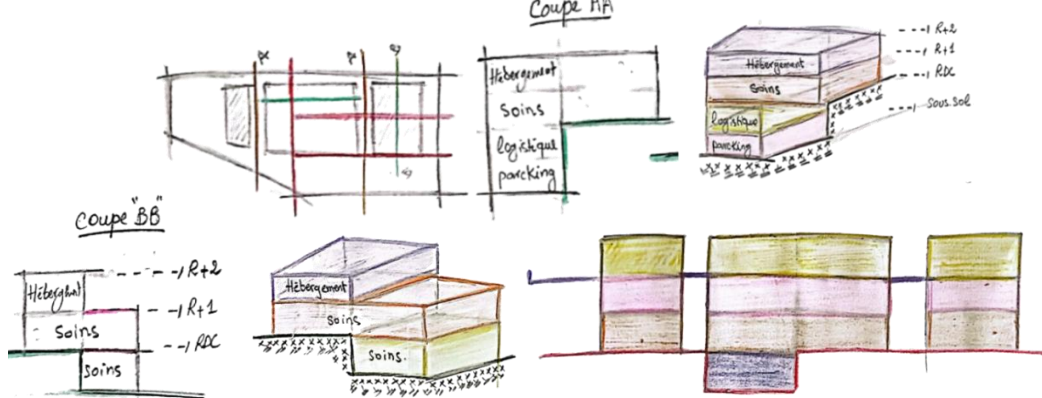 Coupe AA
Hébergement
Soins
logistique
parcking
Hébergement
Soins
logistique
parcking
R+2
R+1
RDC
Sous.sol
Coupe "BB"
Soins
Soins
R+2
R+1
RDC
Hébergement
Soins
Soins.